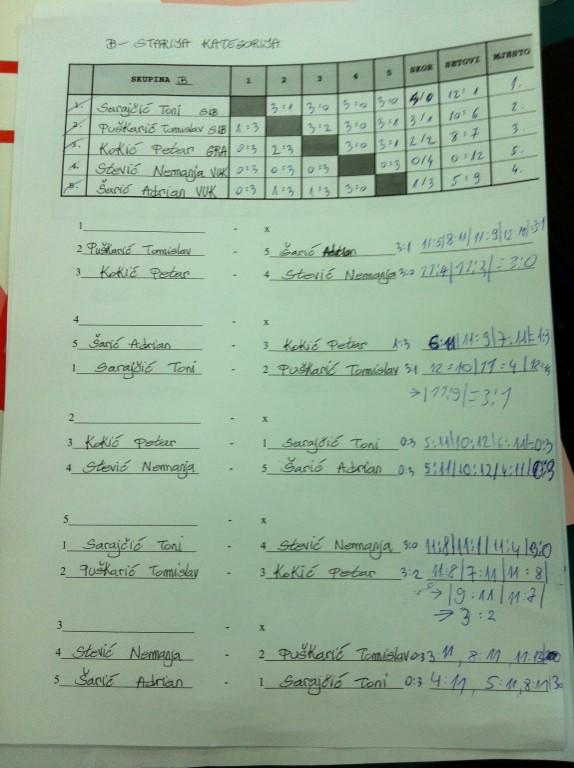 B - STARIJA KATEGORIJA
SKUPINA B 1 2 3 4 5 SKOR SETOVI MJESTO
1. Sarajčić Toni SLB 3:1 3:0 3:0 3:0 4/0 12:1 1.
2. Puškarić Tomislav SLB 1:3 3:2 3:0 3:1 3/1 10:6 2.
3. Kokić Petar GRA 0:3 2:3 3:0 3:1 2/2 8:7 3.
4. Stević Nemanja VUK 0:3 0:3 0:3 0:3 0/4 0:12 5.
5. Šarić Adrian VUK 0:3 1:3 1:3 3:0 1/3 5:9 4.
1 - x
2 Puškarić Tomislav - 5 Šarić Adrian 3:1 11:5/8:11/11:9/12:10/=3:1
3 Kokić Petar - 4 Stević Nemanja 3:0 11:4/11:2/=3:0
4 - x
5 Šarić Adrian - 3 Kokić Petar 1:3 6:11/11:9/7:11/=1:3
1 Sarajčić Toni - 2 Puškarić Tomislav 3:1 12=10/11=4/
→/11:9/=3:1
2 - x
3 Kokić Petar - 1 Sarajčić Toni 0:3 5:11/10:12/6:11/=0:3
4 Stević Nemanja - 5 Šarić Adrian 0:3 5:11/10:12/4:11/0:3
5 - x
1 Sarajčić Toni - 4 Stević Nemanja 3:0 11:8/11:1/11:4/3:0
2 Puškarić Tomislav - 3 Kokić Petar 3:2 11:8/7:11/11=8/
→/9:11/11:7/
→ 3:2
3 - x
4 Stević Nemanja - 2 Puškarić Tomislav 0:3 3:11, 8:11, 11:13
5 Šarić Adrian - 1 Sarajčić Toni 0:3 4:11, 5:11, 8:11/